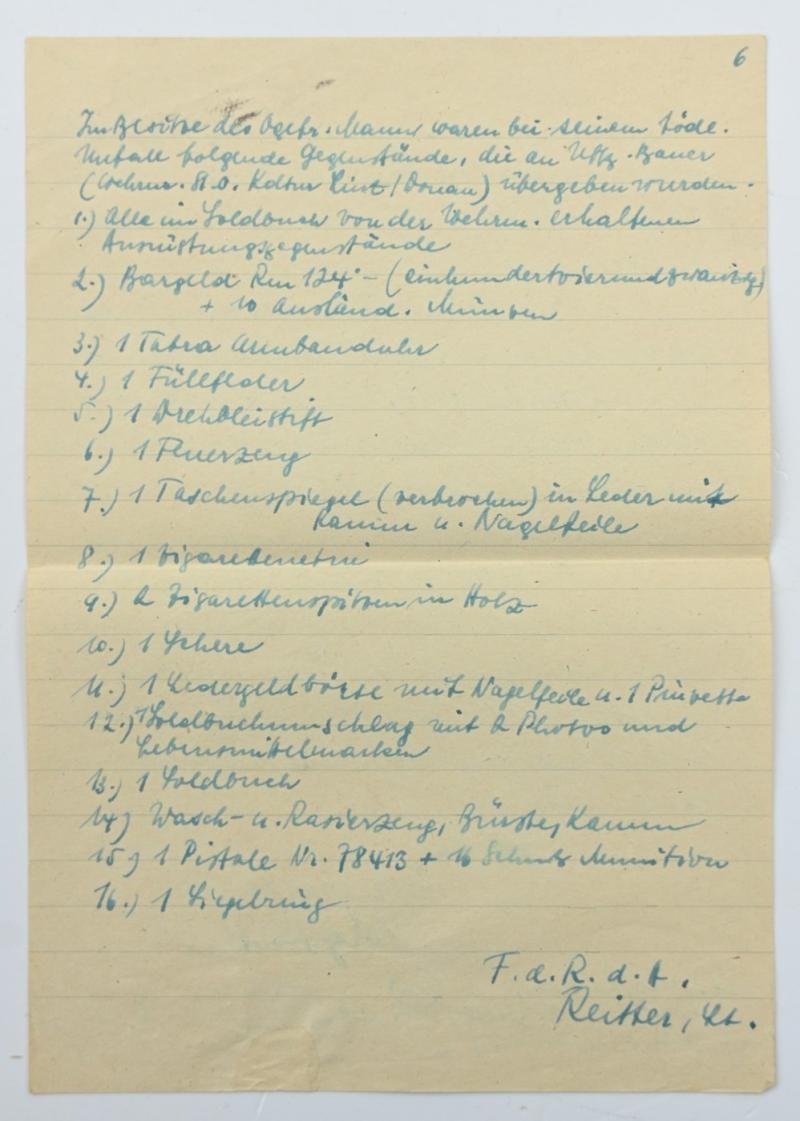 6
Im Besitze des Ogefr. Mann waren bei seinem Tode.
Unfall folgende Gegenstände, die an Uffz. Bauer
(Wehrm. St.O. Kdtur Linz/Donau) übergeben wurden.
1.) Alle im Soldbuch von der Wehrm. erhaltenen
Ausrüstungsgegenstände
2.) Bargeld Rm 124.- (einhundertvierundzwanzig)
+ 10 Ausländ. Münzen
3.) 1 Tatra Armbanduhr
4.) 1 Füllfeder
5.) 1 Drehbleistift
6.) 1 Feuerzeug
7.) 1 Taschenspiegel (verbrochen) in Leder mit
Kamm u. Nagelfeile
8.) 1 Zigarettenetui
9.) 2 Zigarettenspitzen in Holz
10.) 1 Schere
11.) 1 Ledergeldbörse mit Nagelfeile u. 1 Pinzette
12.) 1 Soldbuchumschlag mit 2 Photos und
Lebensmittelmarken
13.) 1 Soldbuch
14) Wasch- u. Rasierzeug, Bürste, Kamm
15) 1 Pistole Nr. 78413 + 16 Schuß Munition
16.) 1 Siegelring
F.d.R.d.A.
Reitter, Lt.